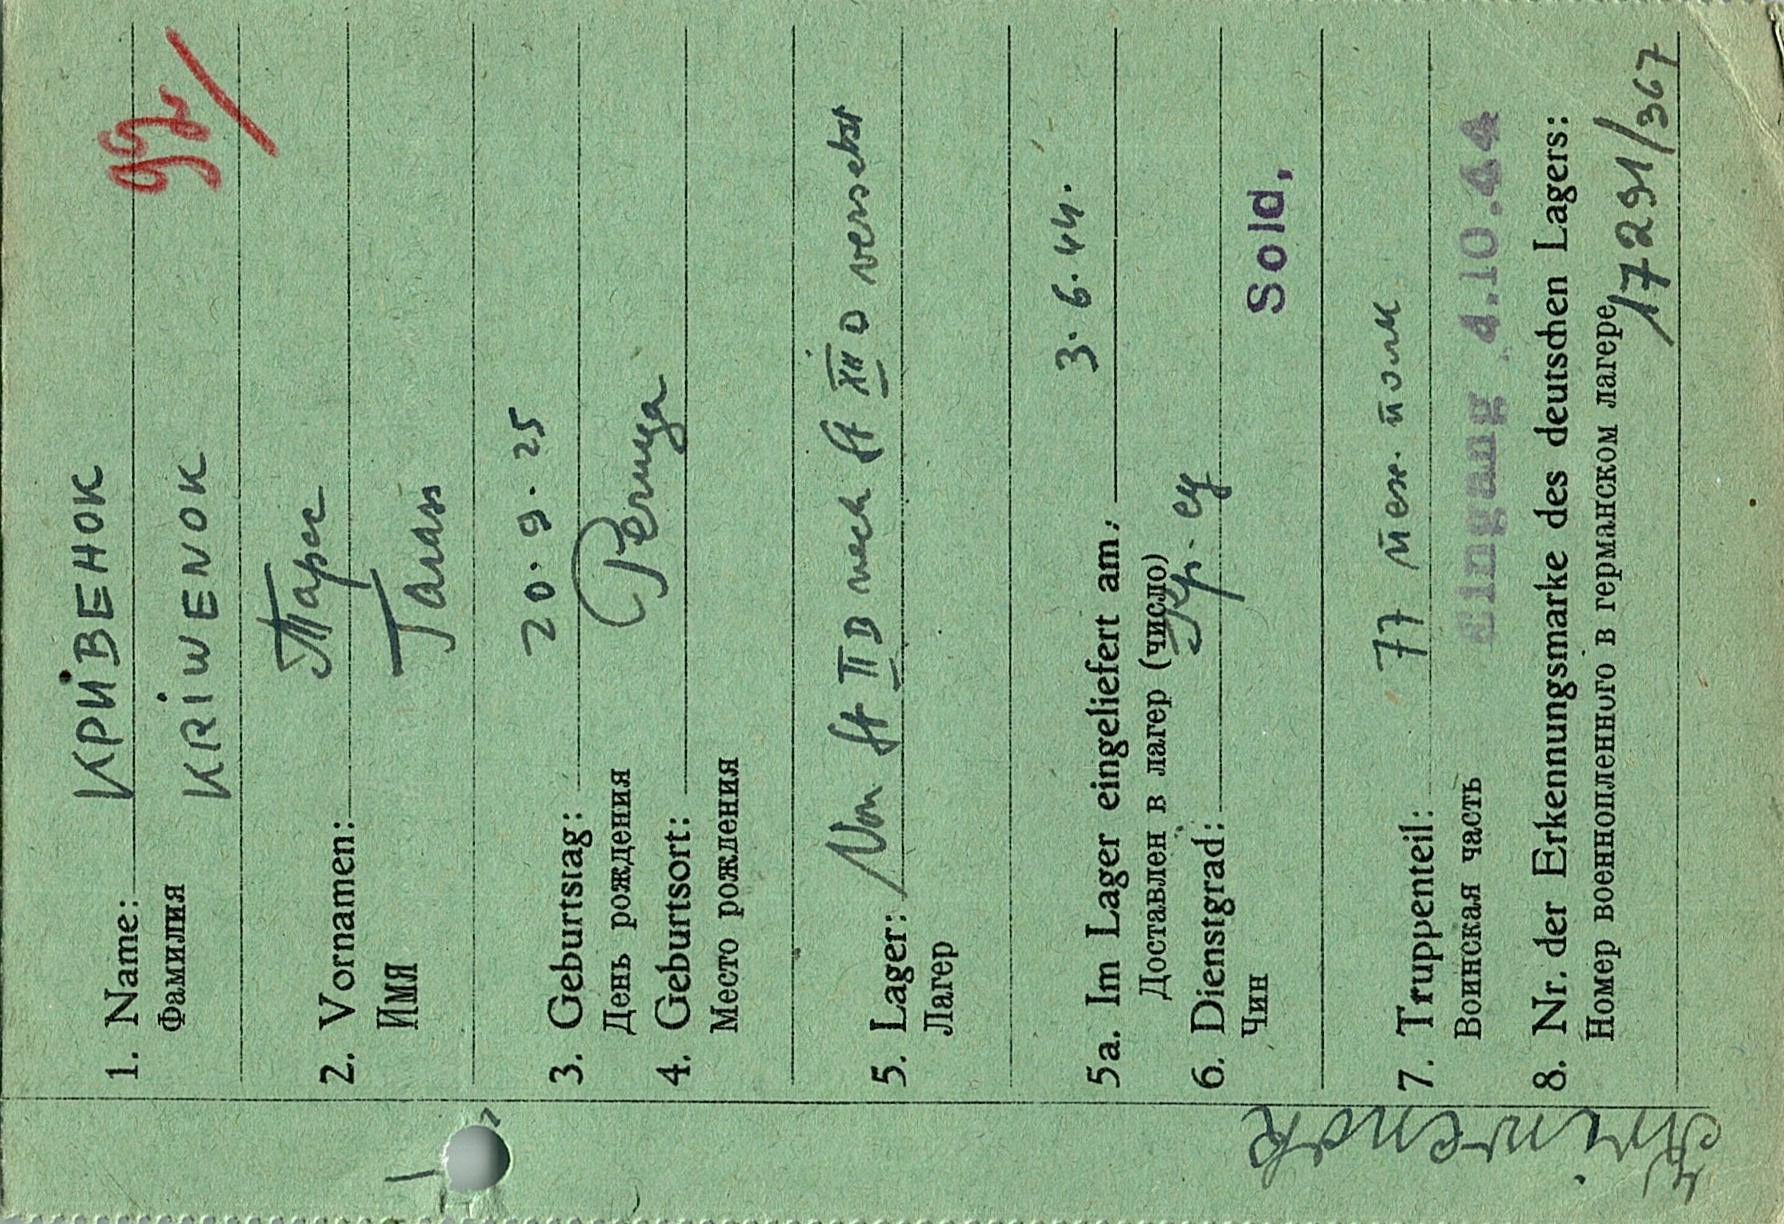 92/
1. Name: КРИВЕНОК
Фамилия KRIWENOK
2. Vornamen: Тарас
Имя Taras
3. Geburtstag: 20.9.25
День рождения
4. Geburtsort:
Место рождения
5. Lager: Von St II D nach St XII D versetzt
Лагер
5a. Im Lager eingeliefert am: 3.6.44.
Доставлен в лагер (число)
6. Dienstgrad: Кр-ец
Чин Sold,
7. Truppenteil: 77 пех. полк
Воинская часть Eingang 4.10.44
8. Nr. der Erkennungsmarke des deutschen Lagers:
Номер военнопленного в германском лагере 17291/367
Kriwenok